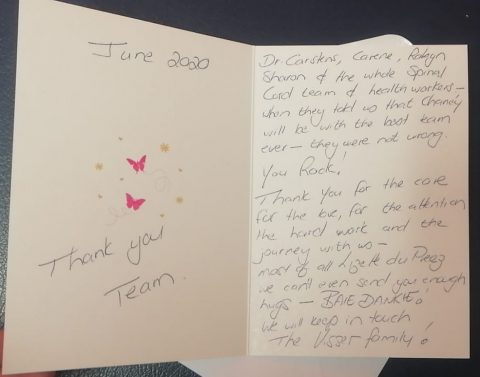 June 2020
Thank you
Team.
Dr Carstens, Carene, Robyn
Sharon & the whole Spinal
Cord team & health workers –
when they told us that Charley
will be with the best team
ever – they were not wrong.
You Rock!
Thank you for the care
for the love, for the attention
the hard work and the
journey with us –
most of all Lizette du Preez
we can't even send you enough
hugs – BAIE DANKIE!
We will keep in touch
The Visser family!